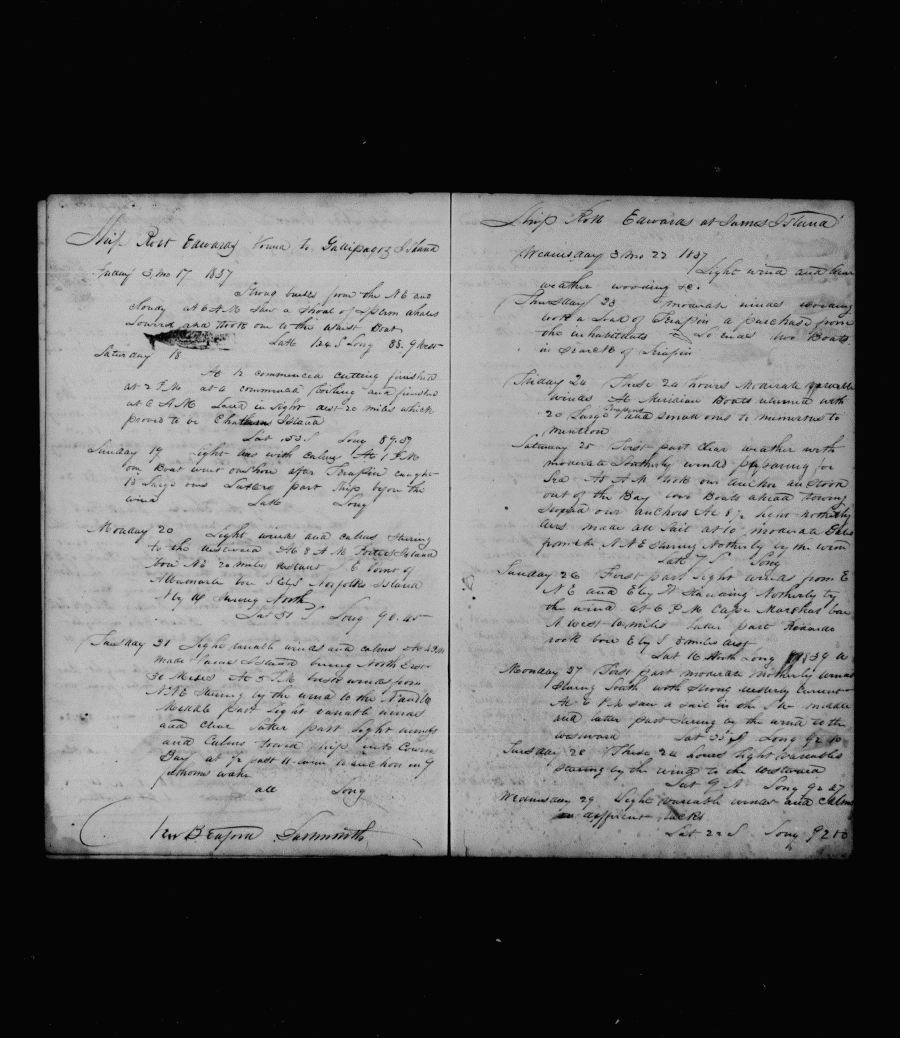 Ship Robt Edwards bound to Gallipagos Island
Friday 3 mo 17 1837
Strong breezes from the N E and
cloudy at 6 A M saw a shoal of Sperm whales
Lowered and took one to the waist Boat
Latt 1 24 S Long 88. 9 West
Saturday 18
At 12 commenced cutting finished
at 2 P M at 6 commenced Boiling and finished
at 6 A M Land in sight dist 20 miles which
proved to be Chatham Island
Lat 53 S Long 89. 59
Sunday 19 Light airs with calms At 1 P M
our Boat went onshore after Terapin caught
15 large ones Latter part Ship before the
wind Latt Long
Monday 20 Light winds and calms steering
to the westward At 8 A M Porters Island
bore N E 20 miles distant S E Point of
Albemarle bore Norfolks Island
N by W steering North
Lat 31 S Long 90. 45
Tuesday 21 Light variable winds and calms At 4 P M
made James Island bearing North East
30 Miles At 5 P M brisk winds from
N N E steering by the wind to the
Middle part light variable winds
and clear latter part light winds
and Calms towed ship into
Bay at ½ past 11 came to anchor in 9
fathoms water
Latt Long
New Bedford Dartmouth
Ship Robt Edwards at James Island
Wednesday 3 mo 22 1837
Light wind and clear
weather wooding &c.
Thursday 23 moderate winds wooding
took a load of Terapin a purchase from
the inhabitants two Boats
in search of Terapin
Friday 24 These 24 hours moderate variable
winds At Meridian Boats returned with
20 Large Terapins and small ones to numerous to
mention
Saturday 25 First part clear weather with
moderate Southerly winds preparing for
Sea At A M took our anchor and stood
out of the Bay two Boats ahead towing
our anchors At 8 ½ northerly
airs made all sail at 10 moderate
from the N N E steering Northerly by the wind
Latt S Long
Sunday 26 First part light winds from E
N E and E by N standing Northerly by
the wind at 6 P M Cape Marshal bore
N west 10 miles latter part Redondo
rock bore E by S 8 miles dist
Lat 16 North Long 39 W
Monday 27 First part moderate Northerly winds
steering South with strong westerly current
At 6 P M saw a sail in the S W middle
and latter part steering by the wind to the
westward Lat 35 S Long 92 40
Tuesday 28 These 24 hours light variables
steering by the wind to the westward
Lat 9 N Long 92 27
Wednesday 29 Light variable winds and Calms
on different tacks
Lat 22 S Long 92 50